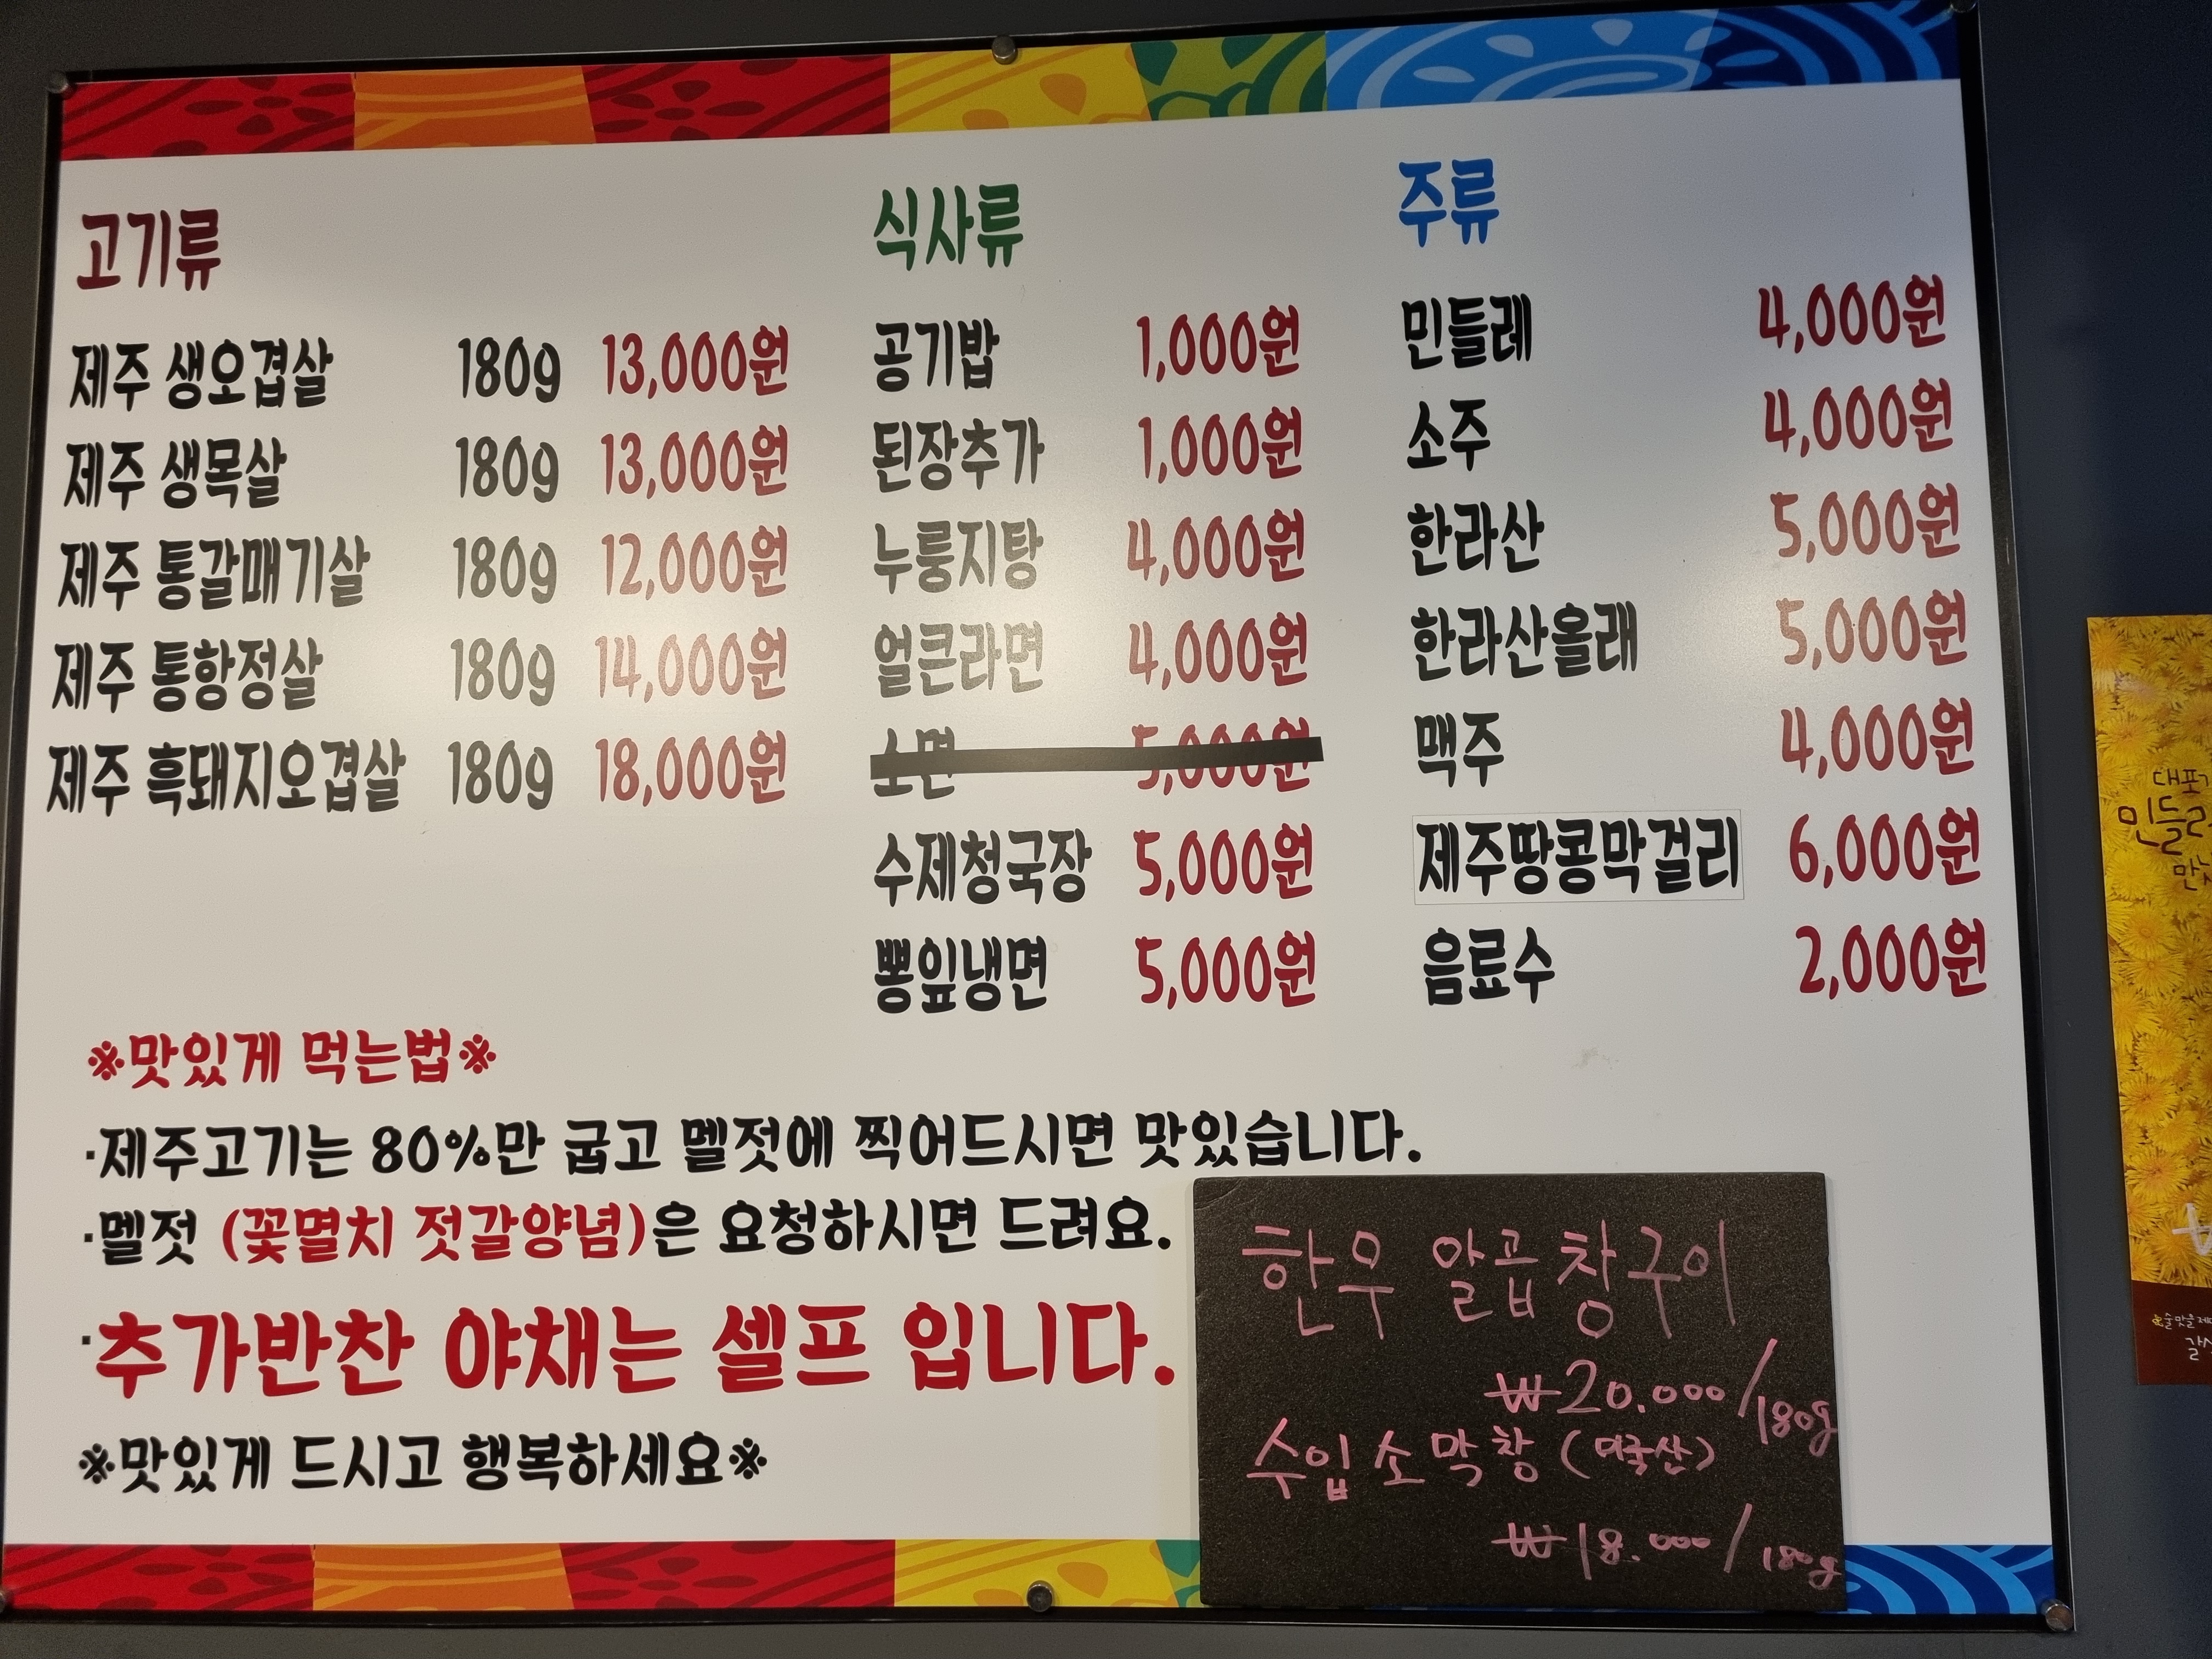 고기류
제주 생오겹살 180g 13,000원
제주 생목살 180g 13,000원
제주 통갈매기살 180g 12,000원
제주 통항정살 180g 14,000원
제주 흑돼지오겹살 180g 18,000원
식사류
공기밥 1,000원
된장추가 1,000원
누룽지탕 4,000원
얼큰라면 4,000원
소면 5,000원
수제청국장 5,000원
뽕잎냉면 5,000원
주류
민들레 4,000원
소주 4,000원
한라산 5,000원
한라산올래 5,000원
맥주 4,000원
제주땅콩막걸리 6,000원
음료수 2,000원
※맛있게 먹는법※
·제주고기는 80%만 굽고 멜젓에 찍어드시면 맛있습니다.
·멜젓 (꽃멸치 젓갈양념)은 요청하시면 드려요.
·추가반찬 야채는 셀프 입니다.
※맛있게 드시고 행복하세요※
한우 알곱창구이
₩20.000/180g
수입 소막창 (미국산)
₩18.000/180g
대포
민들레